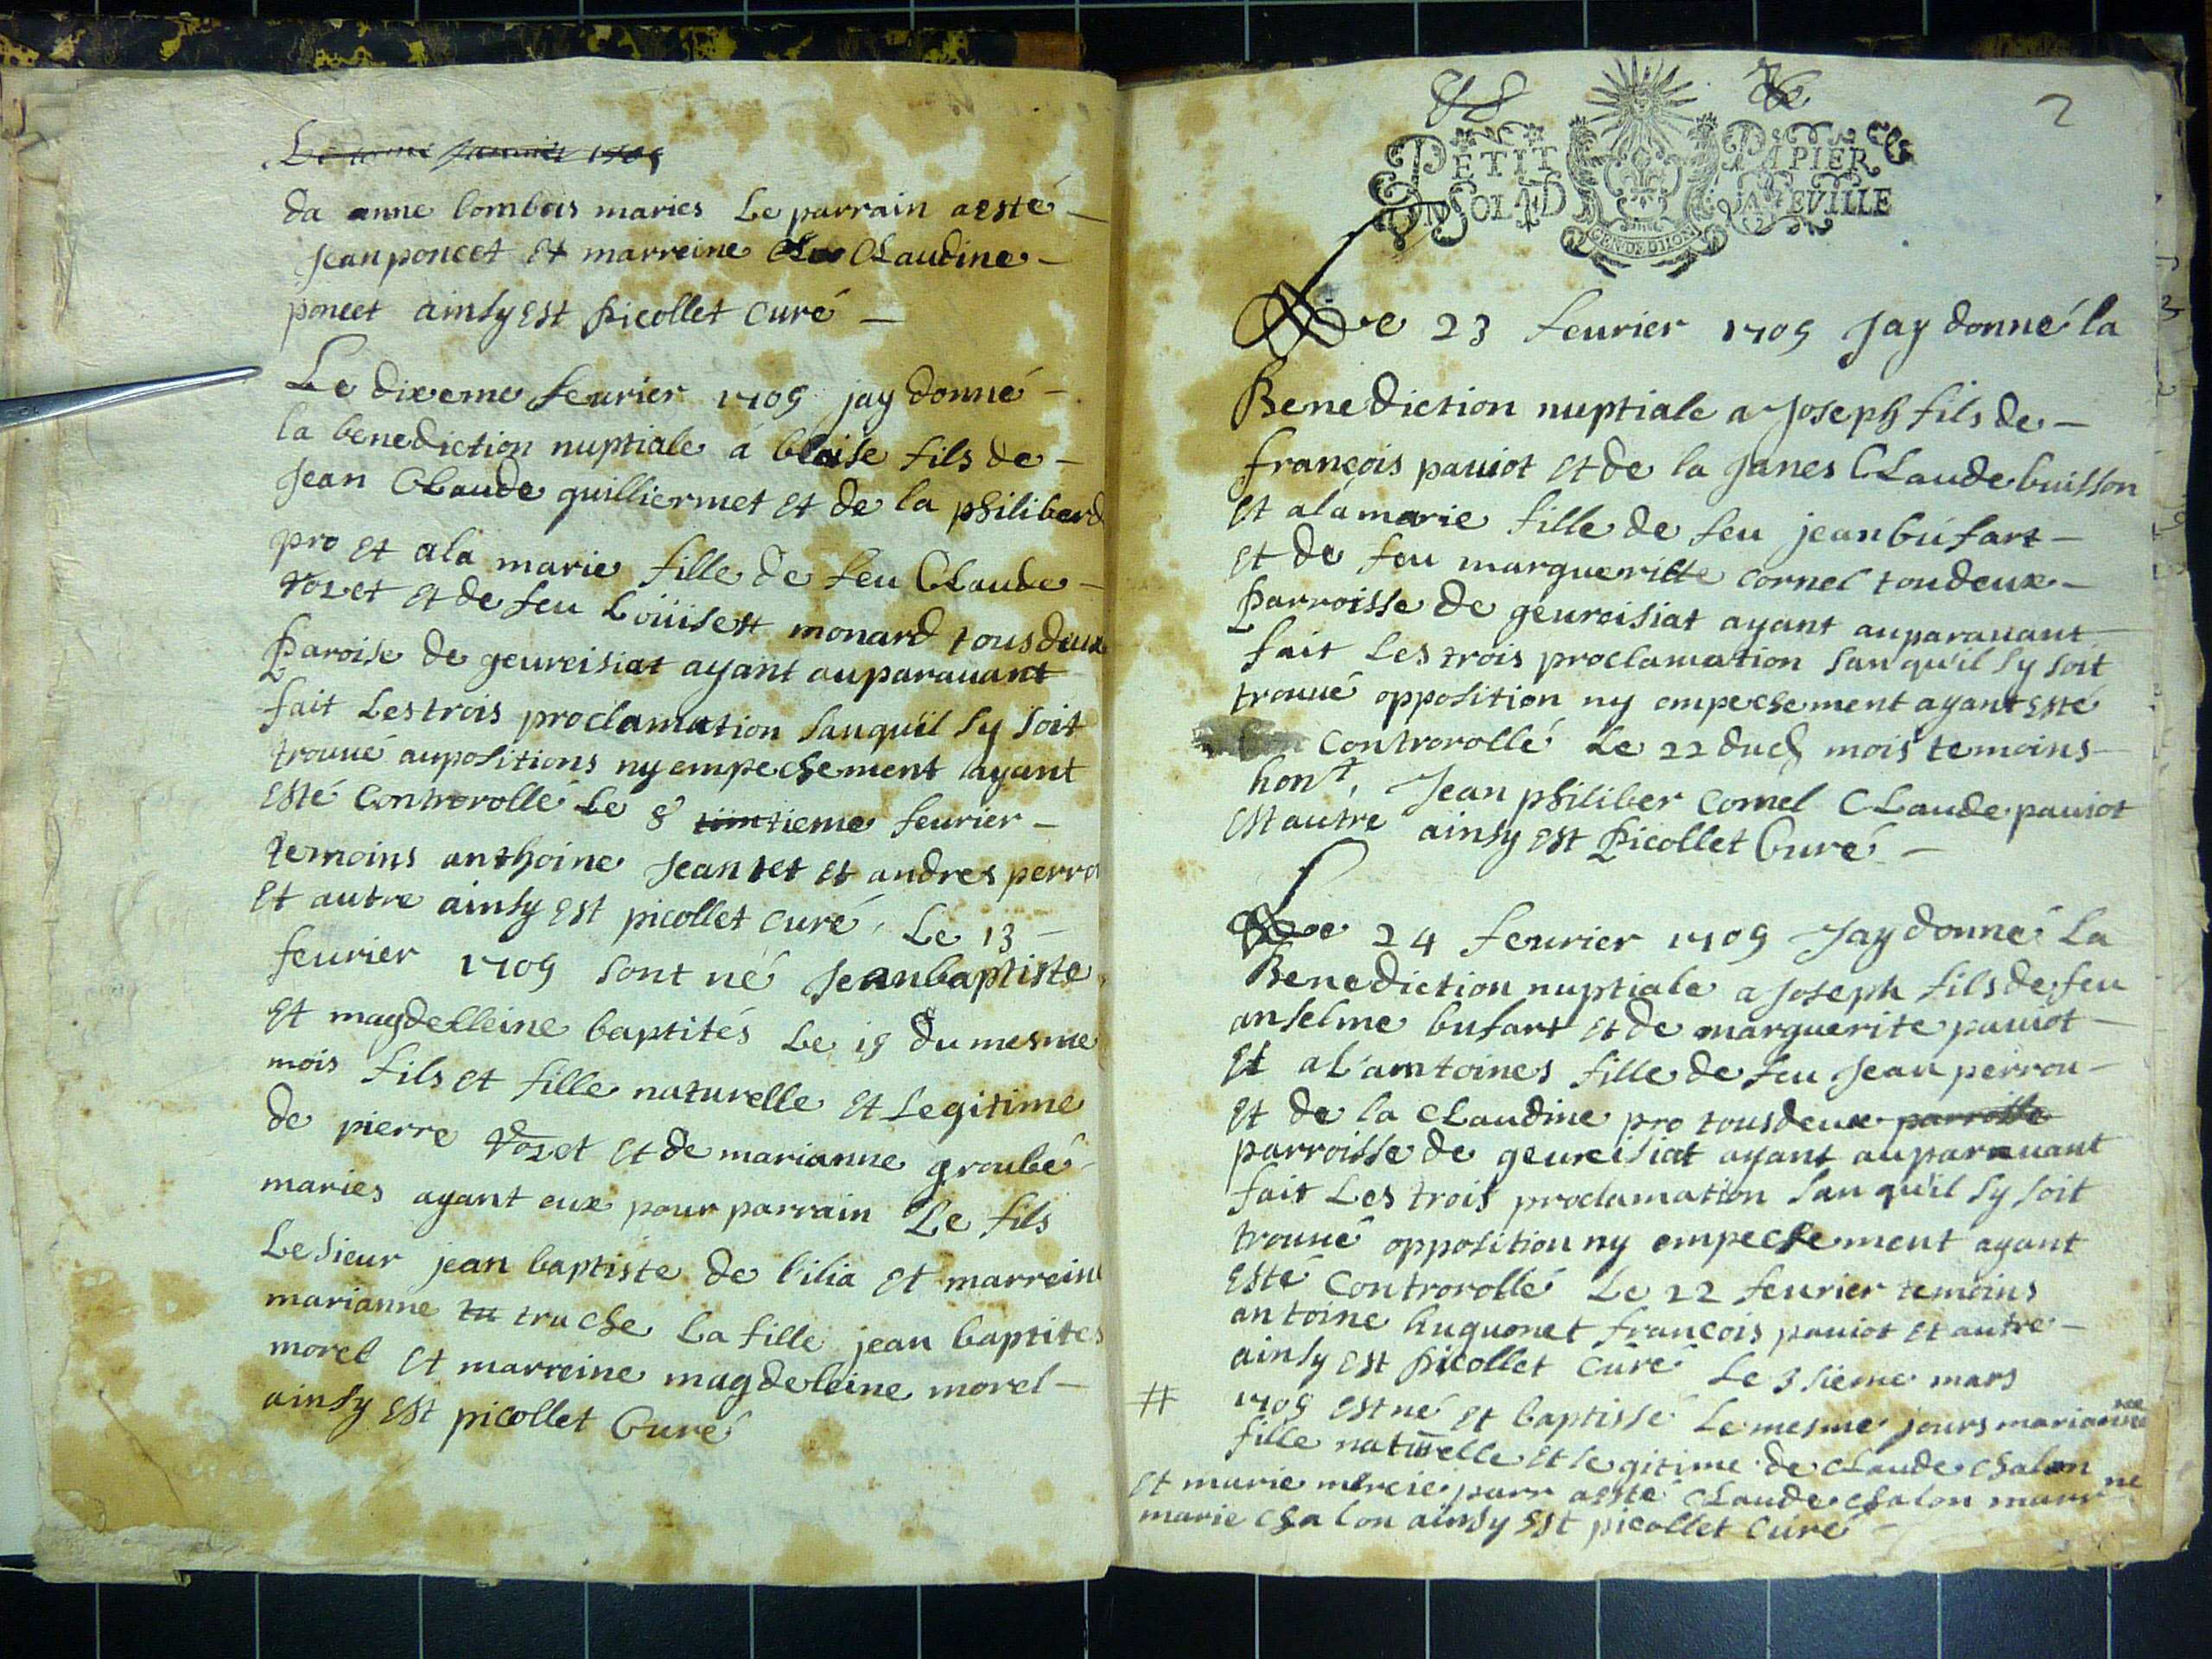 da anne lombois maries Le parrain a esté
Jean poncet et marreine Claudine
poncet ainsy est Picollet curé
Le dixeme feurier 1709 jay donné
la benediction nuptiale a blaise fils de
Jean Claude guilliermet et de la philiberd
pro et a la marie fille de feu Claude
et de feu Loüise monard tous deux
Paroise de geureisiat ayant auparauant
fait Les trois proclamation san qu'il sy soit
trouué aupositions ny empechement ayant
Esté Controrollé Le 8 tieme feurier
temoins anthoine Jeantet et andres perro
et autre ainsy est picollet curé. Le 13
feurier 1709 sont né Jean baptiste
et magdelleine baptités Le 18 du mesme
mois fils et fille naturelle et Legitime
de pierre et de marianne groubé
maries ayant eux pour parrain Le fils
Le sieur jean baptiste de l'ilia et marreine
marianne tu truche La fille jean baptites
morel et marreine magdeleine morel
ainsy est picollet Curé
2
PETIT PAPIER
UN SOL LA FEVILLE
Le 23 feurier 1709 Jay donné la
Benediction nuptiale a Joseph fils de
françois pauiot et de la Janes Claude buisson
et a la marie fille de feu jean bufart
et de feu margueritte cornel tou deux
Parroisse de geureisiat ayant auparauant
fait Les trois proclamation san qu'il sy soit
trouué opposition ny empechement ayant esté
Controrollé Le 22 dud mois temoins
hont. Jean philiber Cornel Claude pauiot
est autre ainsy est Picollet Curé
Le 24 feurier 1709 Jay donné La
Benediction nuptiale a Joseph fils de feu
anselme bufart et de marguerite pauiot
et a l'amtoines fille de feu Jean perrou
et de la Claudine pro tous deux parroisse
parroisse de geureisiat ayant auparauant
fait Les trois proclamation san qu'il sy soit
trouué opposition ny empechement ayant
Esté Controrollé Le 22 feurier temoins
antoine huguonet francois pauiot et autre
ainsy est Picollet Curé Le 3 sieme mars
# 1709 est né et baptissé Le mesme jours marianne
fille naturelle et legitime de Claude chalon
et marie mercié parr a esté Claude chalon marr ne
marie chalon ainsy est picollet Curé